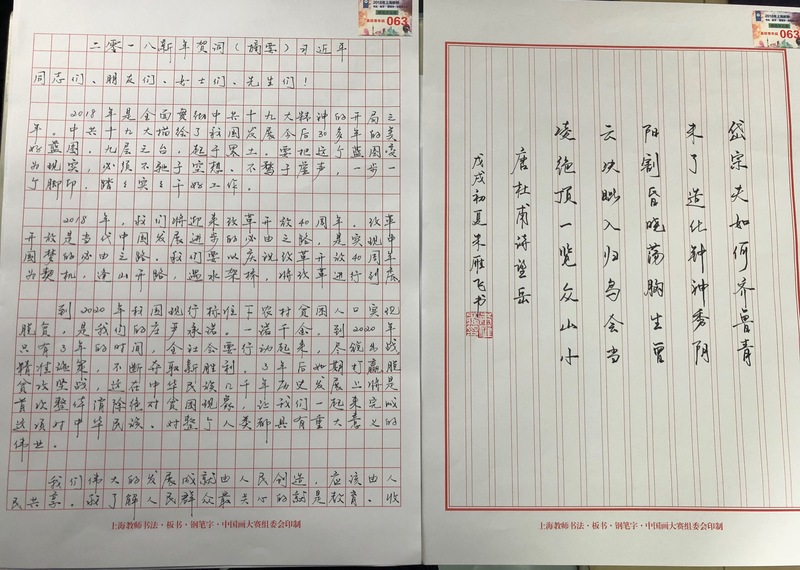 063
二零一八新年贺词（摘要）习近平
同志们、朋友们、女士们、先生们！
2018年是全面贯彻中共十九大精神的开局之
年。中共十九大描绘了我国发展今后30多年的美
好蓝图。九层之台，起于累土。要把这个蓝图变
为现实，必须不驰于空想、不骛于虚声，一步一
个脚印，踏〻实〻干好工作。
2018年，我们将迎来改革开放40周年。改革
开放是当代中国发展进步的必由之路，是实现中
国梦的必由之路。我们要以庆祝改革开放40周年
为契机，逢山开路，遇水架桥，将改革进行到底
到2020年我国现行标准下农村贫困人口实现
脱贫，是我们的庄严承诺。一诺千金。到2020年
只有3年的时间，全社会要行动起来，尽锐出战
精准施策，不断夺取新胜利。3年后如期打赢脱
贫攻坚战，这在中华民族几千年历史发展上将是
首次整体消除绝对贫困现象，让我们一起来完成
这项对中华民族、对整个人类都具有重大意义的
伟业。
我们伟大的发展成就由人民创造，应该由人
民共享。我了解人民群众最关心的就是教育、收
上海教师书法·板书·钢笔字·中国画大赛组委会印制
063
岱宗夫如何齐鲁青
未了造化钟神秀阴
阳割昏晓荡胸生曾
云决眦入归鸟会当
凌绝顶一览众山小
唐杜甫诗望岳
戊戌初夏朱雁飞书
上海教师书法·板书·钢笔字·中国画大赛组委会印制